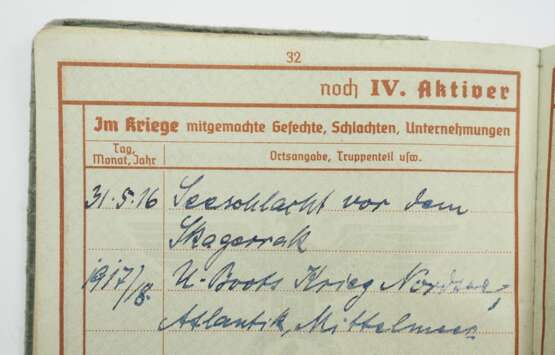 32
noch IV. Aktiver
Im Kriege mitgemachte Gefechte, Schlachten, Unternehmungen
Tag, Monat, Jahr
Ortsangabe, Truppenteil usw.
31.5.16 Seeschlacht vor dem
Skagerrak
1917/8. U-Boots Krieg Nordsee,
Atlantik, Mittelmeer